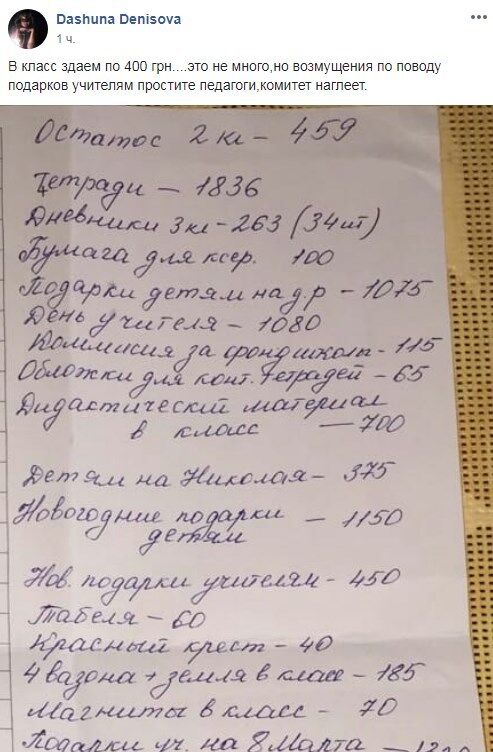 Dashuna Denisova
1 ч.
В класс здаем по 400 грн....это не много,но возмущения по поводу
подарков учителям простите педагоги,комитет наглеет.
Остаток 2 кл - 459
Тетради - 1836
Дневники 3 кл - 263 (34 шт)
Бумага для ксер. 100
Подарки детям на д.р - 1075
День учителя - 1080
Коммисия за фонд школы - 115
Обложки для конт. тетрадей - 65
Дидактический материал
в класс - 700
Детям на Николая - 375
Новогодние подарки - 1150
детям
Нов. подарки учителям - 450
Табеля - 60
Красный крест - 40
4 вазона + земля в класс - 185
Магниты в класс - 70
Подарки уч. на 8 Марта -